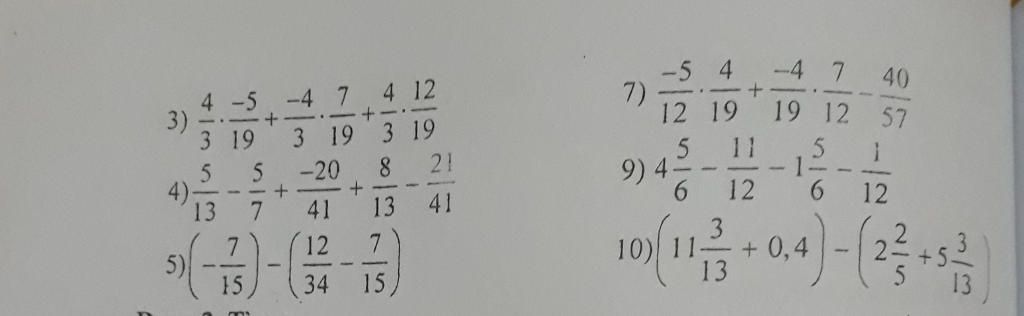 3) 4/3 · -5/19 + -4/3 · 7/19 + 4/3 · 12/19
4) 5/13 - 5/7 + -20/41 + 8/13 - 21/41
5) (-7/15) - (12/34 - 7/15)
7) -5/12 · 4/19 + -4/19 · 7/12 - 40/57
9) 4 5/6 - 11/12 - 1 5/6 - 1/12
10) (11 3/13 + 0,4) - (2 2/5 + 5 3/13)